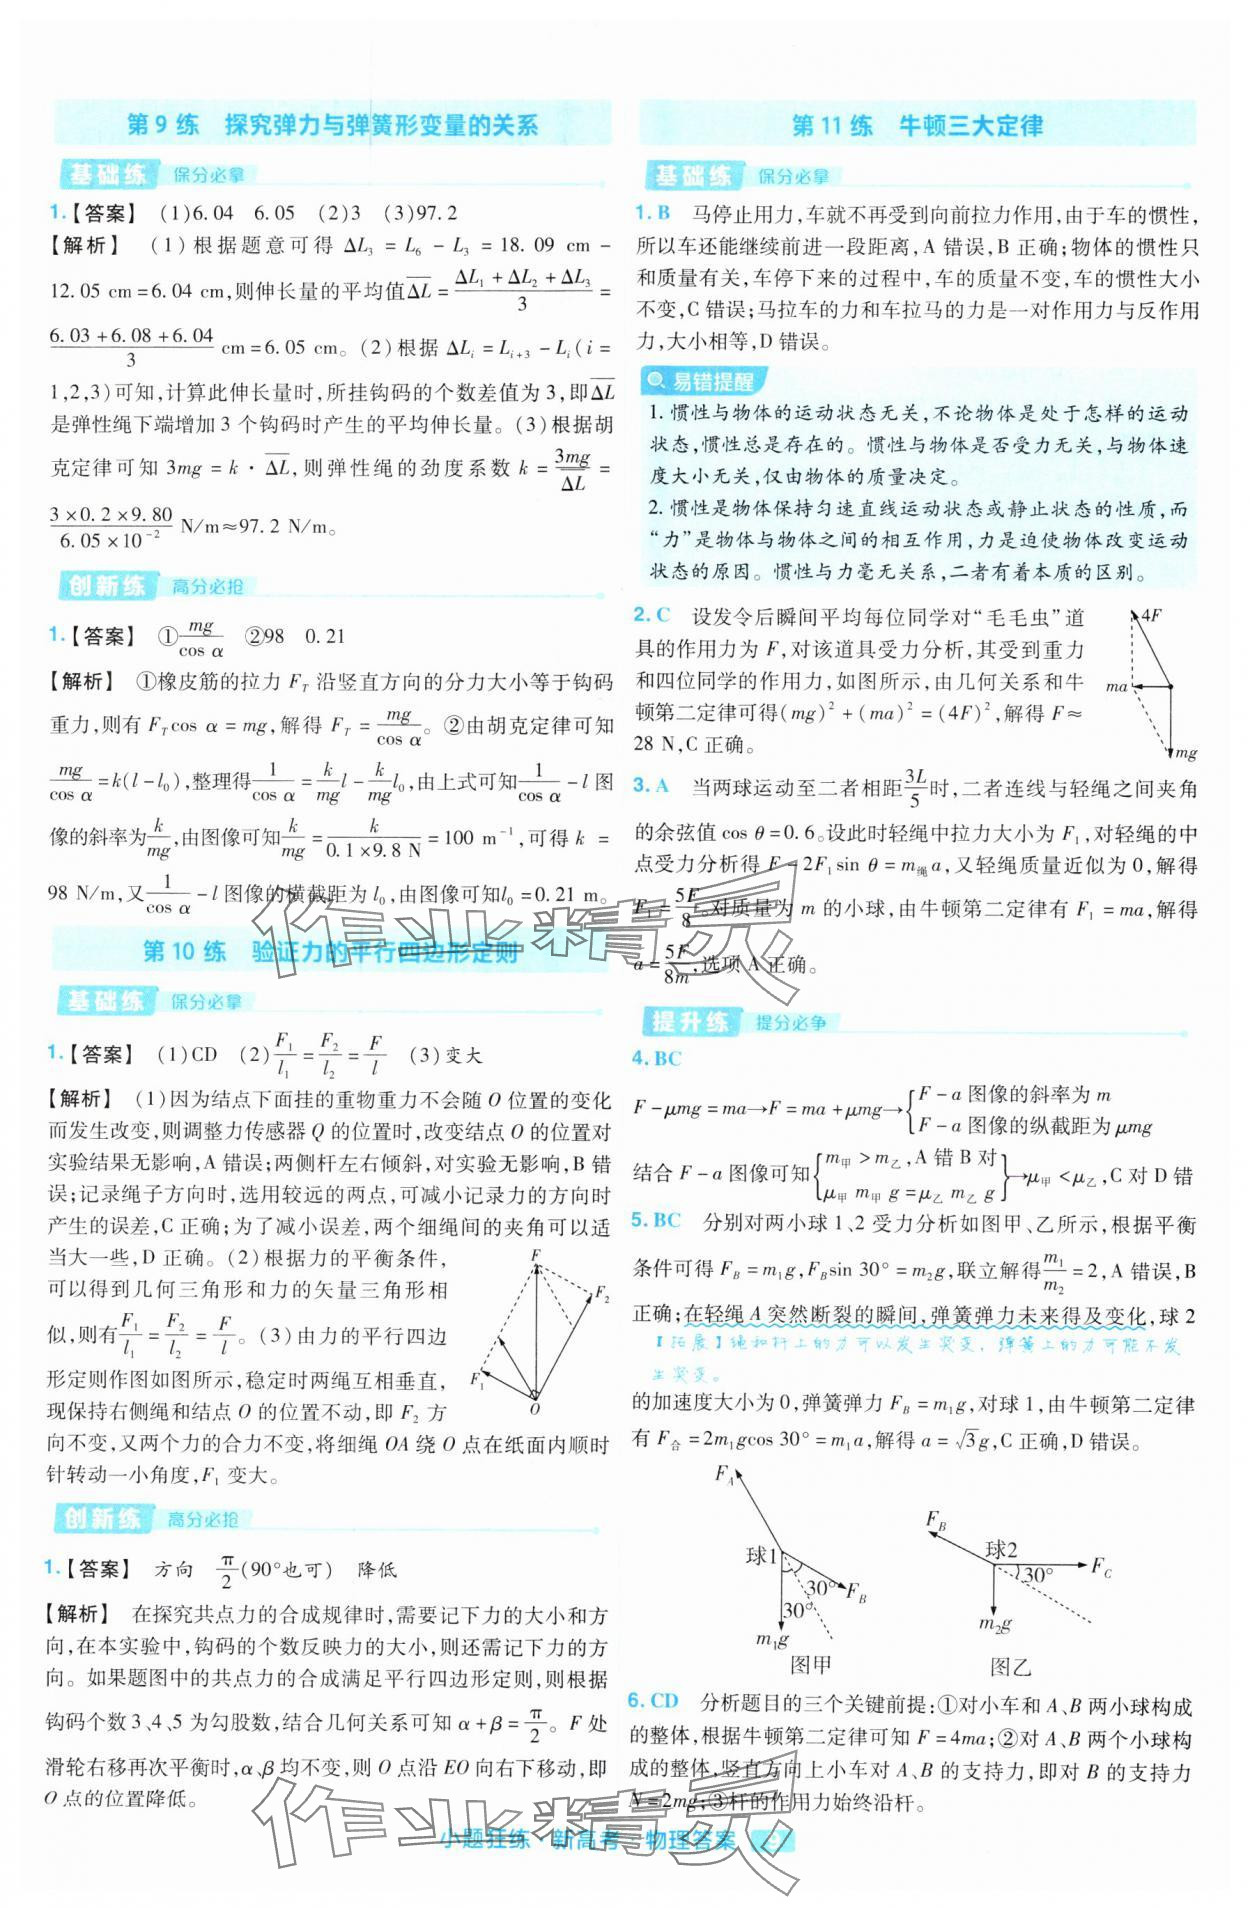 第 9 练 探究弹力与弹簧形变量的关系
基础练 保分必拿
1.【答案】 (1)6.04 6.05 (2)3 (3)97.2
【解析】 (1)根据题意可得 ΔL₃ = L₆ - L₃ = 18.09 cm -
12.05 cm=6.04 cm,则伸长量的平均值 \overline{ΔL} = (ΔL₁+ΔL₂+ΔL₃)/3 =
(6.03+6.08+6.04)/3 cm=6.05 cm。(2)根据 ΔLᵢ=Lᵢ₊₃-Lᵢ(i=
1,2,3)可知,计算此伸长量时,所挂钩码的个数差值为 3,即 \overline{ΔL}
是弹性绳下端增加 3 个钩码时产生的平均伸长量。(3)根据胡
克定律可知 3mg = k · \overline{ΔL},则弹性绳的劲度系数 k = 3mg/\overline{ΔL} =
(3×0.2×9.80)/(6.05×10⁻²) N/m≈97.2 N/m。
创新练 高分必抢
1.【答案】 ①mg/cos α ②98 0.21
【解析】 ①橡皮筋的拉力 F_T 沿竖直方向的分力大小等于钩码
重力,则有 F_T cos α = mg,解得 F_T = mg/cos α。②由胡克定律可知
mg/cos α=k(l-l₀),整理得1/cos α=(k/mg)l-(k/mg)l₀,由上式可知1/cos α-l 图
像的斜率为k/mg,由图像可知k/mg=k/(0.1×9.8 N)=100 m⁻¹,可得 k =
98 N/m,又1/cos α-l 图像的横截距为 l₀,由图像可知l₀=0.21 m。
第 10 练 验证力的平行四边形定则
基础练 保分必拿
1.【答案】 (1)CD (2)F₁/l₁=F₂/l₂=F/l (3)变大
【解析】 (1)因为结点下面挂的重物重力不会随 O 位置的变化
而发生改变,则调整力传感器 Q 的位置时,改变结点 O 的位置对
实验结果无影响,A 错误;两侧杆左右倾斜,对实验无影响,B 错
误;记录绳子方向时,选用较远的两点,可减小记录力的方向时
产生的误差,C 正确;为了减小误差,两个细绳间的夹角可以适
当大一些,D 正确。(2)根据力的平衡条件,
可以得到几何三角形和力的矢量三角形相
似,则有F₁/l₁=F₂/l₂=F/l。(3)由力的平行四边
形定则作图如图所示,稳定时两绳互相垂直,
现保持右侧绳和结点 O 的位置不动,即 F₂ 方
向不变,又两个力的合力不变,将细绳 OA 绕 O 点在纸面内顺时
针转动一小角度,F₁ 变大。
F
F₂
F₁
O
创新练 高分必抢
1.【答案】 方向 π/2(90°也可) 降低
【解析】 在探究共点力的合成规律时,需要记下力的大小和方
向,在本实验中,钩码的个数反映力的大小,则还需记下力的方
向。如果题图中的共点力的合成满足平行四边形定则,则根据
钩码个数3、4、5 为勾股数,结合几何关系可知 α+β=π/2。F 处
滑轮右移再次平衡时,α、β 均不变,则 O 点沿 EO 向右下移动,即
O 点的位置降低。
第 11 练 牛顿三大定律
基础练 保分必拿
1. B 马停止用力,车就不再受到向前拉力作用,由于车的惯性,
所以车还能继续前进一段距离,A 错误,B 正确;物体的惯性只
和质量有关,车停下来的过程中,车的质量不变,车的惯性大小
不变,C 错误;马拉车的力和车拉马的力是一对作用力与反作用
力,大小相等,D 错误。
易错提醒
1. 惯性与物体的运动状态无关,不论物体是处于怎样的运动
状态,惯性总是存在的。惯性与物体是否受力无关,与物体速
度大小无关,仅由物体的质量决定。
2. 惯性是物体保持匀速直线运动状态或静止状态的性质,而
“力”是物体与物体之间的相互作用,力是迫使物体改变运动
状态的原因。惯性与力毫无关系,二者有着本质的区别。
2. C 设发令后瞬间平均每位同学对“毛毛虫”道
具的作用力为 F,对该道具受力分析,其受到重力
和四位同学的作用力,如图所示,由几何关系和牛
顿第二定律可得(mg)²+(ma)²=(4F)²,解得 F≈
28 N,C 正确。
4F
ma
mg
3. A 当两球运动至二者相距3L/5时,二者连线与轻绳之间夹角
的余弦值 cos θ=0.6。设此时轻绳中拉力大小为 F₁,对轻绳的中
点受力分析得 F-2F₁sin θ=m绳a,又轻绳质量近似为 0,解得
F₁=5F/8。对质量为 m 的小球,由牛顿第二定律有 F₁=ma,解得
a=5F/8m,选项 A 正确。
提升练 提分必争
4. BC
F-μmg=ma→F=ma+μmg→{F-a 图像的斜率为 m
F-a 图像的纵截距为 μmg
结合 F-a 图像可知{m甲>m乙,A 错 B 对
μ甲 m甲 g=μ乙 m乙 g}→μ甲<μ乙,C 对 D 错
5. BC 分别对两小球 1、2 受力分析如图甲、乙所示,根据平衡
条件可得 F_B=m₁g,F_B sin 30°=m₂g,联立解得m₁/m₂=2,A 错误,B
正确;在轻绳 A 突然断裂的瞬间,弹簧弹力未来得及变化,球 2
【拓展】绳和杆上的力可以发生突变,弹簧上的力可能不发
生突变。
的加速度大小为 0,弹簧弹力 F_B=m₁g,对球 1,由牛顿第二定律
有 F合=2m₁gcos 30°=m₁a,解得 a=√3g,C 正确,D 错误。
F_A
球1
30°
F_B
30°
m₁g
图甲
F_B
球2
F_C
30°
m₂g
图乙
6. CD 分析题目的三个关键前提:①对小车和 A、B 两小球构成
的整体,根据牛顿第二定律可知 F=4ma;②对 A、B 两个小球构
成的整体,竖直方向上小车对 A、B 的支持力,即对 B 的支持力
N=2mg;③杆的作用力始终沿杆。
小题狂练·新高考·物理答案 9
作业精灵
作业精灵